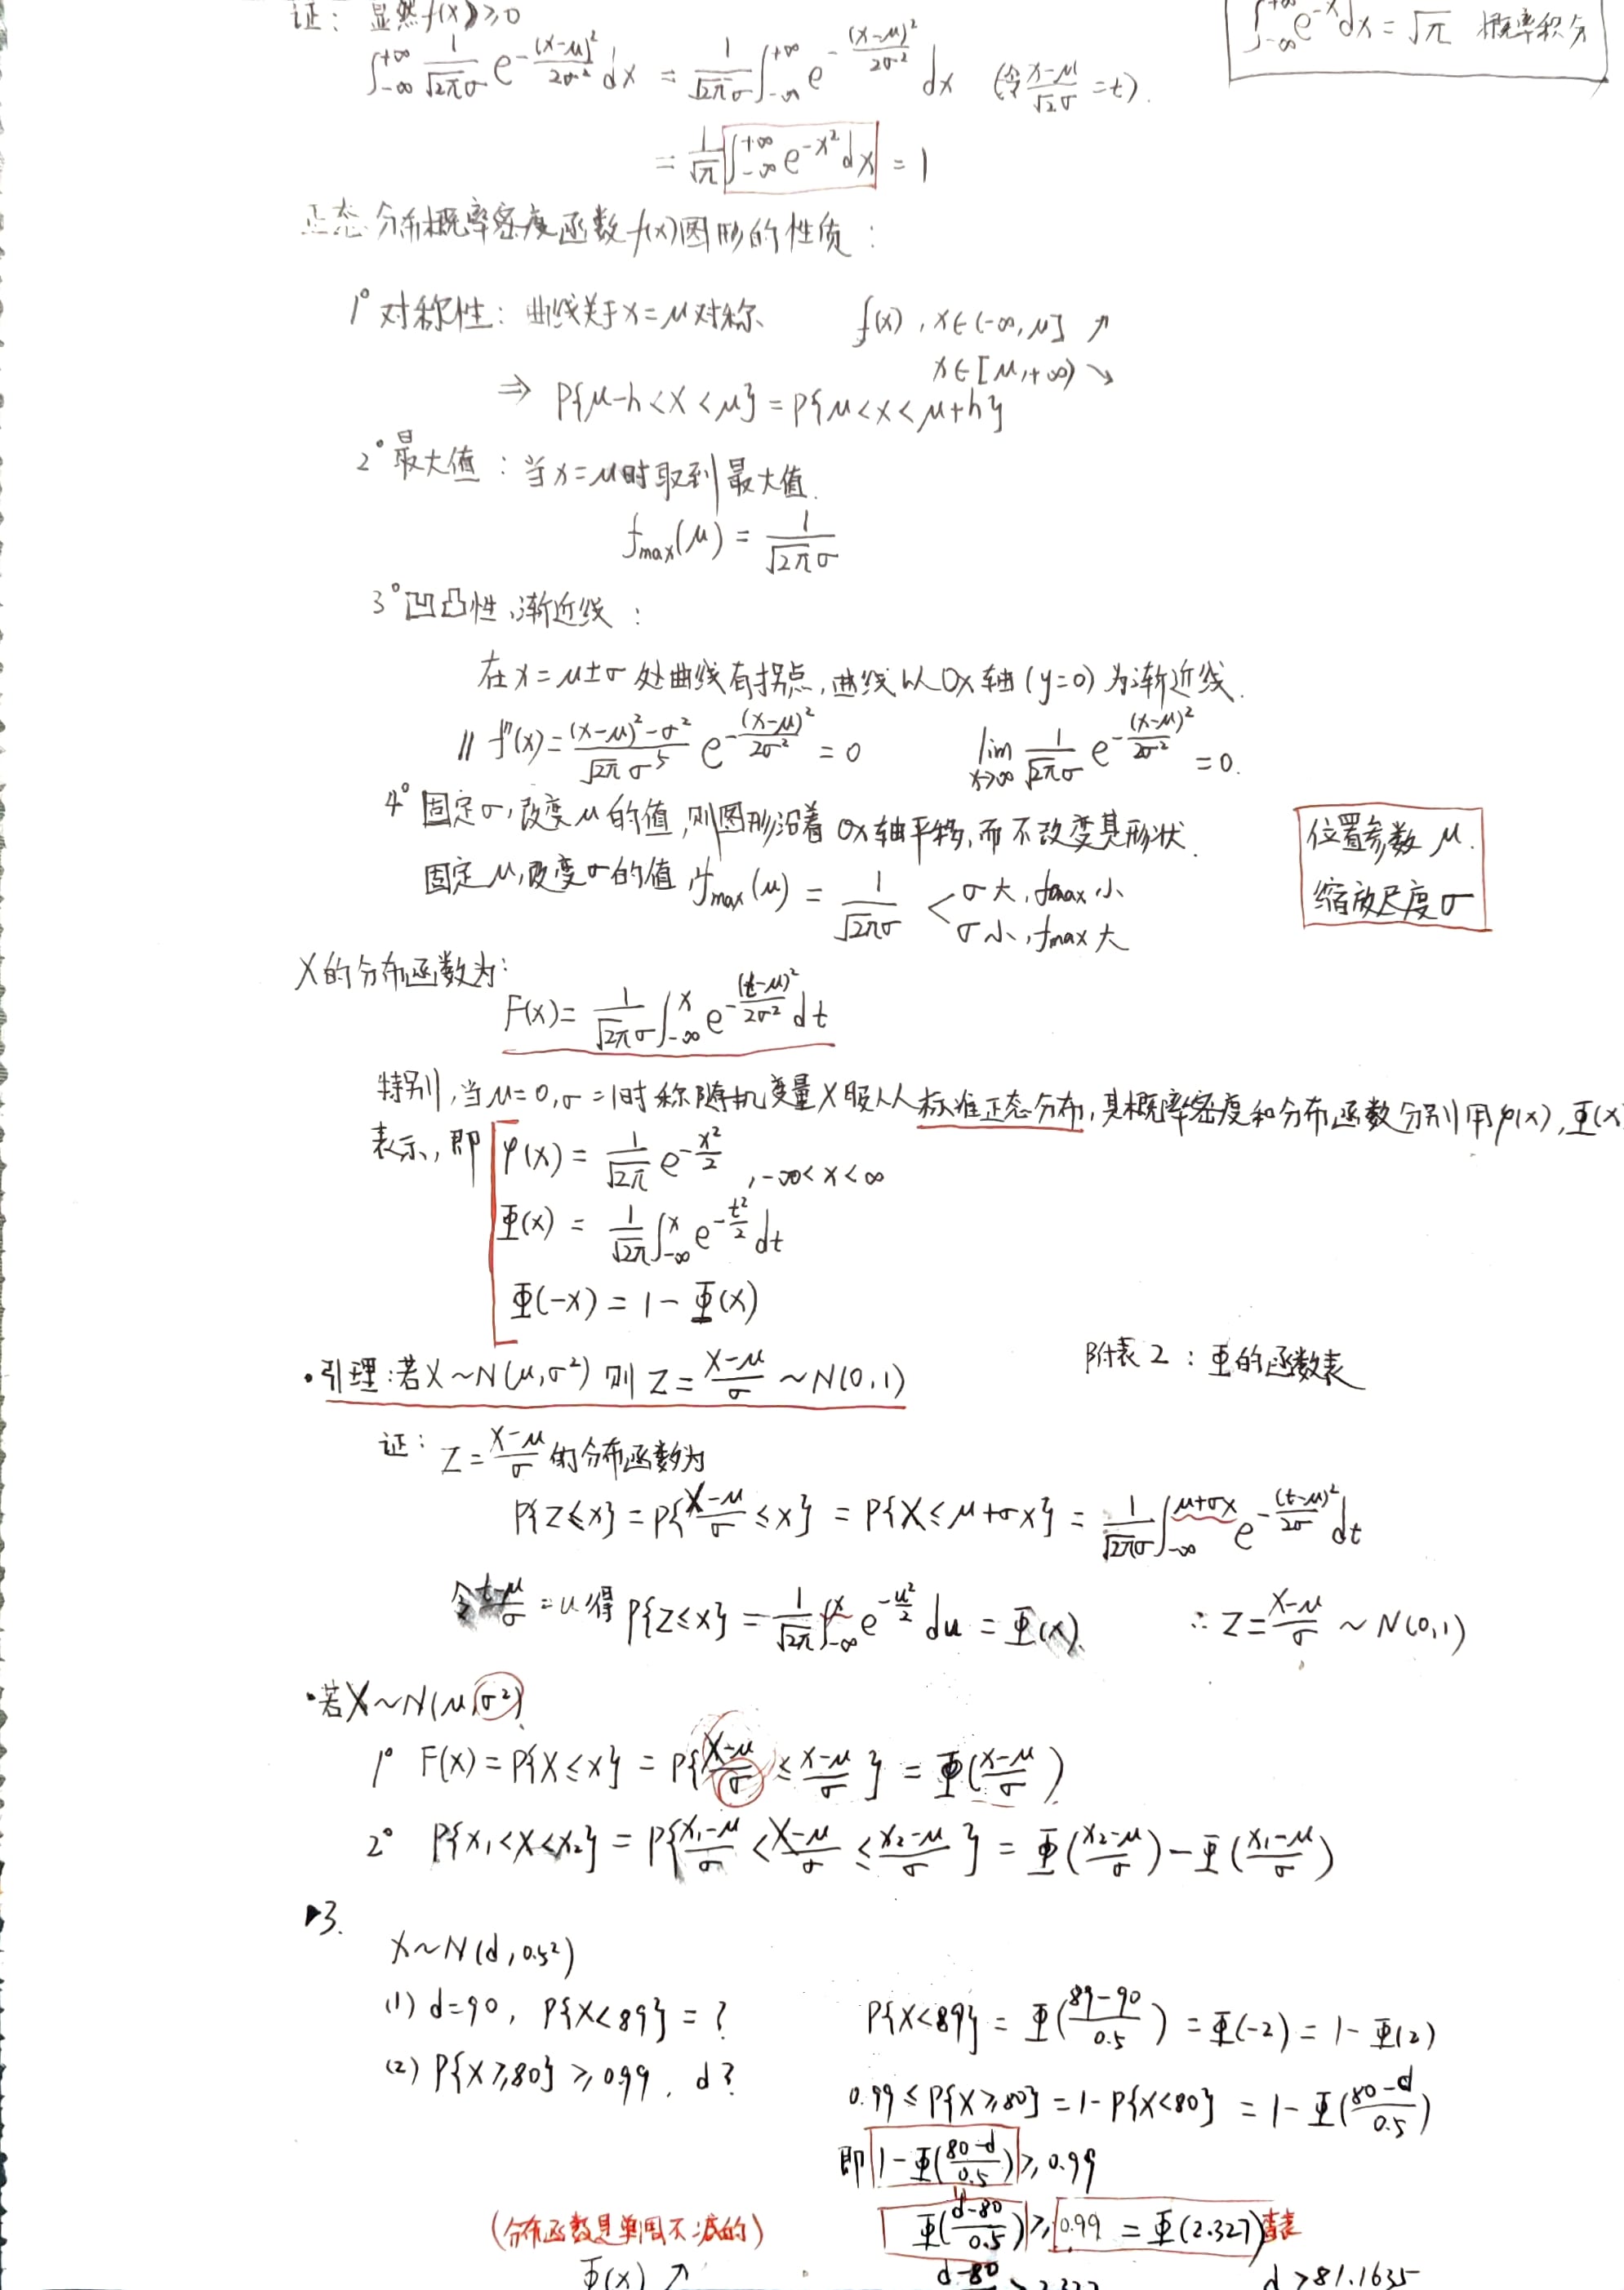 证: 显然f(x)≥0
∫_{-∞}^{+∞} 1/(√(2π)σ) e^{-(x-μ)²/(2σ²)} dx = 1/(√(2π)σ) ∫_{-∞}^{+∞} e^{-(x-μ)²/(2σ²)} dx (令 (x-μ)/(√2σ) = t).
∫_{-∞}^{+∞} e^{-x} dx = √π 概率积分
= 1/√π ∫_{-∞}^{+∞} e^{-x²} dx = 1
正态分布概率密度函数f(x)图形的性质:
1° 对称性: 曲线关于x=μ对称 f(x), x∈(-∞, μ] ↗
x∈[μ,+∞) ↘
⇒ P{μ-h<X<μ} = P{μ<X<μ+h}
2° 最大值: 当x=μ时取到最大值.
f_max(μ) = 1/(√(2π)σ)
3° 凹凸性、渐近线:
在x=μ±σ处曲线有拐点,曲线以Ox轴(y=0)为渐近线.
∥ f''(x) = ((x-μ)²-σ²)/(√(2π)σ⁵) e^{-(x-μ)²/(2σ²)} = 0 lim_{x→∞} 1/(√(2π)σ) e^{-(x-μ)²/(2σ²)} = 0.
4° 固定σ,改变μ的值,则图形沿着Ox轴平移,而不改变其形状.
固定μ,改变σ的值, f_max(μ) = 1/(√(2π)σ) < σ大, f_max小
σ小, f_max大
位置参数μ.
缩放尺度σ
X的分布函数为:
F(x) = 1/(√(2π)σ) ∫_{-∞}^{x} e^{-(t-μ)²/(2σ²)} dt
特别,当μ=0,σ=1时称随机变量X服从标准正态分布,其概率密度和分布函数分别用φ(x),Φ(x
表示,即 φ(x) = 1/√(2π) e^{-x²/2}, -∞<x<∞
Φ(x) = 1/√(2π) ∫_{-∞}^{x} e^{-t²/2} dt
Φ(-x) = 1 - Φ(x)
·引理:若X~N(μ,σ²) 则 Z = (X-μ)/σ ~N(0,1) 附表2: Φ的函数表
证: Z = (X-μ)/σ 的分布函数为
P{Z≤x} = P{(X-μ)/σ ≤x} = P{X≤μ+σx} = 1/(√(2π)σ) ∫_{-∞}^{μ+σx} e^{-(t-μ)²/(2σ)} dt
令 (t-μ)/σ = u 得 P{Z≤x} = 1/√(2π) ∫_{-∞}^{x} e^{-u²/2} du = Φ(x). ∴ Z = (X-μ)/σ ~ N(0,1)
·若X~N(μ,σ²)
1° F(x) = P{X≤x} = P{(X-μ)/σ ≤ (x-μ)/σ} = Φ((x-μ)/σ)
2° P{x₁<X<x₂} = P{(x₁-μ)/σ < (X-μ)/σ ≤ (x₂-μ)/σ} = Φ((x₂-μ)/σ) - Φ((x₁-μ)/σ)
▶3.
X~N(d, 0.5²)
(1) d=90, P{X<89} = ? P{X<89} = Φ((89-90)/0.5) = Φ(-2) = 1-Φ(2)
(2) P{X≥80} ≥0.99, d? 0.99 ≤ P{X≥80} = 1-P{X<80} = 1-Φ((80-d)/0.5)
即 1-Φ((80-d)/0.5) ≥ 0.99
(分布函数是单调不减的) Φ((d-80)/0.5) ≥ 0.99 = Φ(2.327) 查表
Φ(x) ↗ d-80 d>81.1635